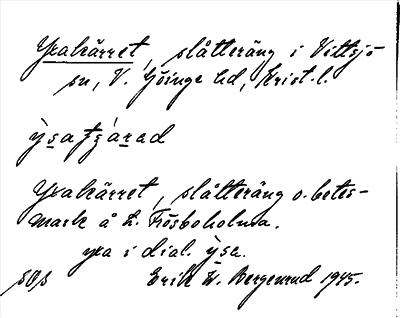 Yxakärret, slåtteräng i Vittsjö
sn, V. Göinge hd, Krist. l.
Yxakärret, slåtteräng o. betes-
mark å L. Frösboholma.
yxa i dial. ỳsa.
Erik W. Bergenrud 1945.